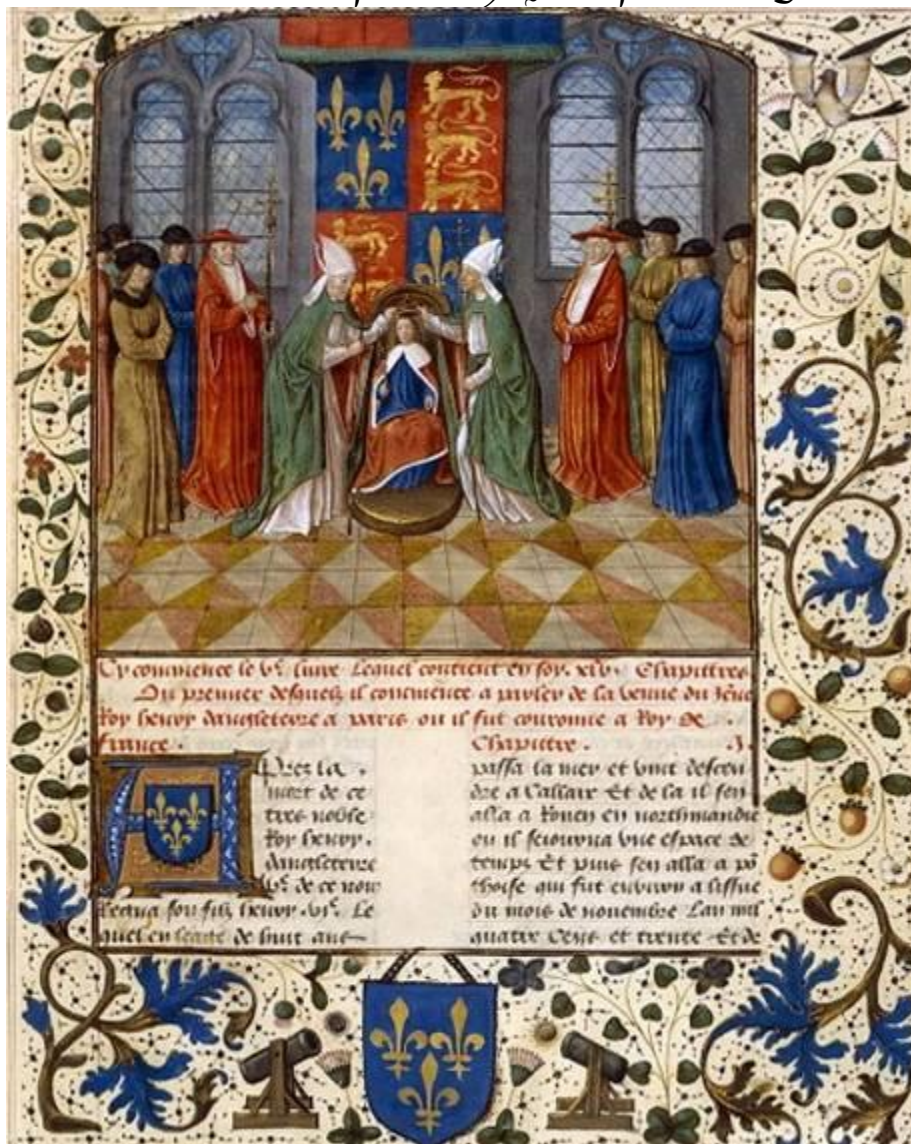 Cy commence le v.e livre Lequel contient en soy .xlv. Chapittres
Du premier desquelz il commence a parler de la venue du Jeune
Roy henry dangleterre a paris ou il fut couronne a Roy de
france . Chapittre . .I.
Apres la
mort de ce
tres noble
Roy henry .
dangleterre
v.e de ce nom
son filz henry .vi.e Le
quel en leage de huit ans
passa la mer et vint descen
dre a Callaix Et de la il sen
alla a Rouen en northmandie
ou il seiourna une espace de
temps Et puis sen alla a po
thoise qui fut environ a lissue
du mois de novembre Lan mil
quatre Cens et trente Et de